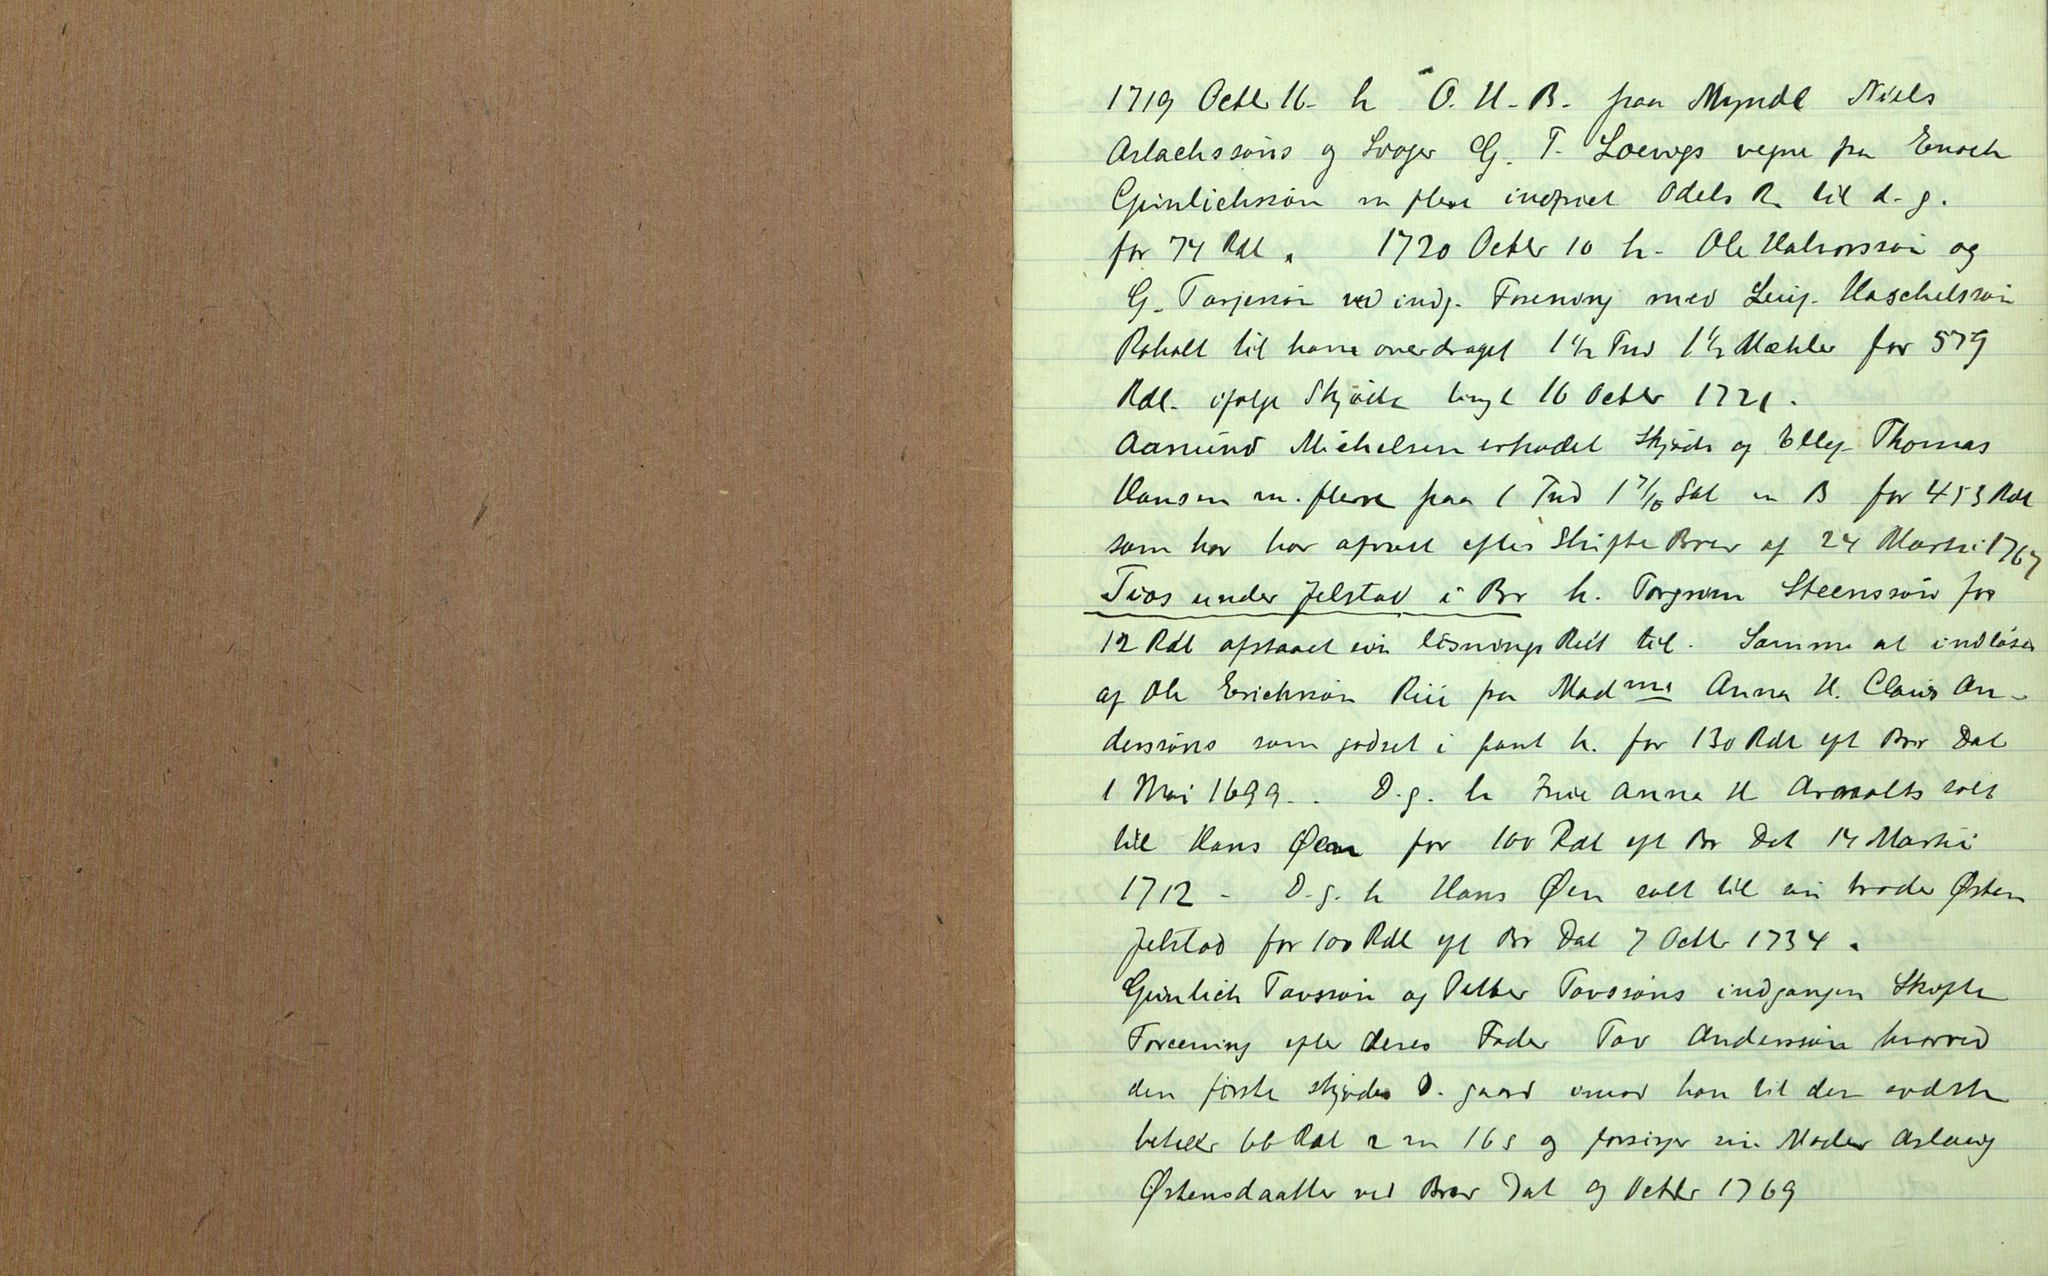 1719 Octbr 16- h O. H. B. paa Myndl Niels
Aslachssøns og Svoger G. T. Loevigs vegne fra Enoch
Gunlichssøn m flere indfriet Odels R. til d. g.
for 74 Rdl. 1720 Octbr 10 h. Ole Halvorssøn og
G. Tarjessøn ved indg. Forening med Leif Haschelssøn
Roholt til ham overdraget 1½ Tnd 1½ Mæhler for 579
Rdl. ifølge Skjøde tingl 16 Octbr 1721.
Aamund Michelsen erholdet Skjøde af Elley Thomas
Hansen m. flere paa 1 Tnd 1 7/10 Sæt m B for 453 Rdl
som har arvet efter Skifte Brev af 24 Martii 1767
Tvos under Jelstad i Br h. Torgrim Steenssøn for
12 Rdl afstaaet sin løsnings Rett til. Samme at indløse
af Ole Erichssøn Rii fra Madme Anna H. Claus An-
derssøns som godset i pant h. for 130 Rdl eft Brv Dat
1 Mai 1699. D. g. h Frue Anna H Arnolts solt
til Hans Øen for 100 Rdl eft Br Dat 14 Martii
1712 - D. g. h Hans Øen solt til sin broder Østen
Jelstad for 100 Rdl eft Br Dat 7 Octbr 1734.
Gunlich Tovssøn og Petter Tovssøns indgangen Skifte
Foreening efter deres Fader Tov Anderssøn hvorved
den første skjøder D. gaard imod han til den sidste
betaler 66 Rdl 2 m 16 s og forsørger sin Moder Aslaug
Østensdaatter ved Brev Dat 9 Octbr 1769